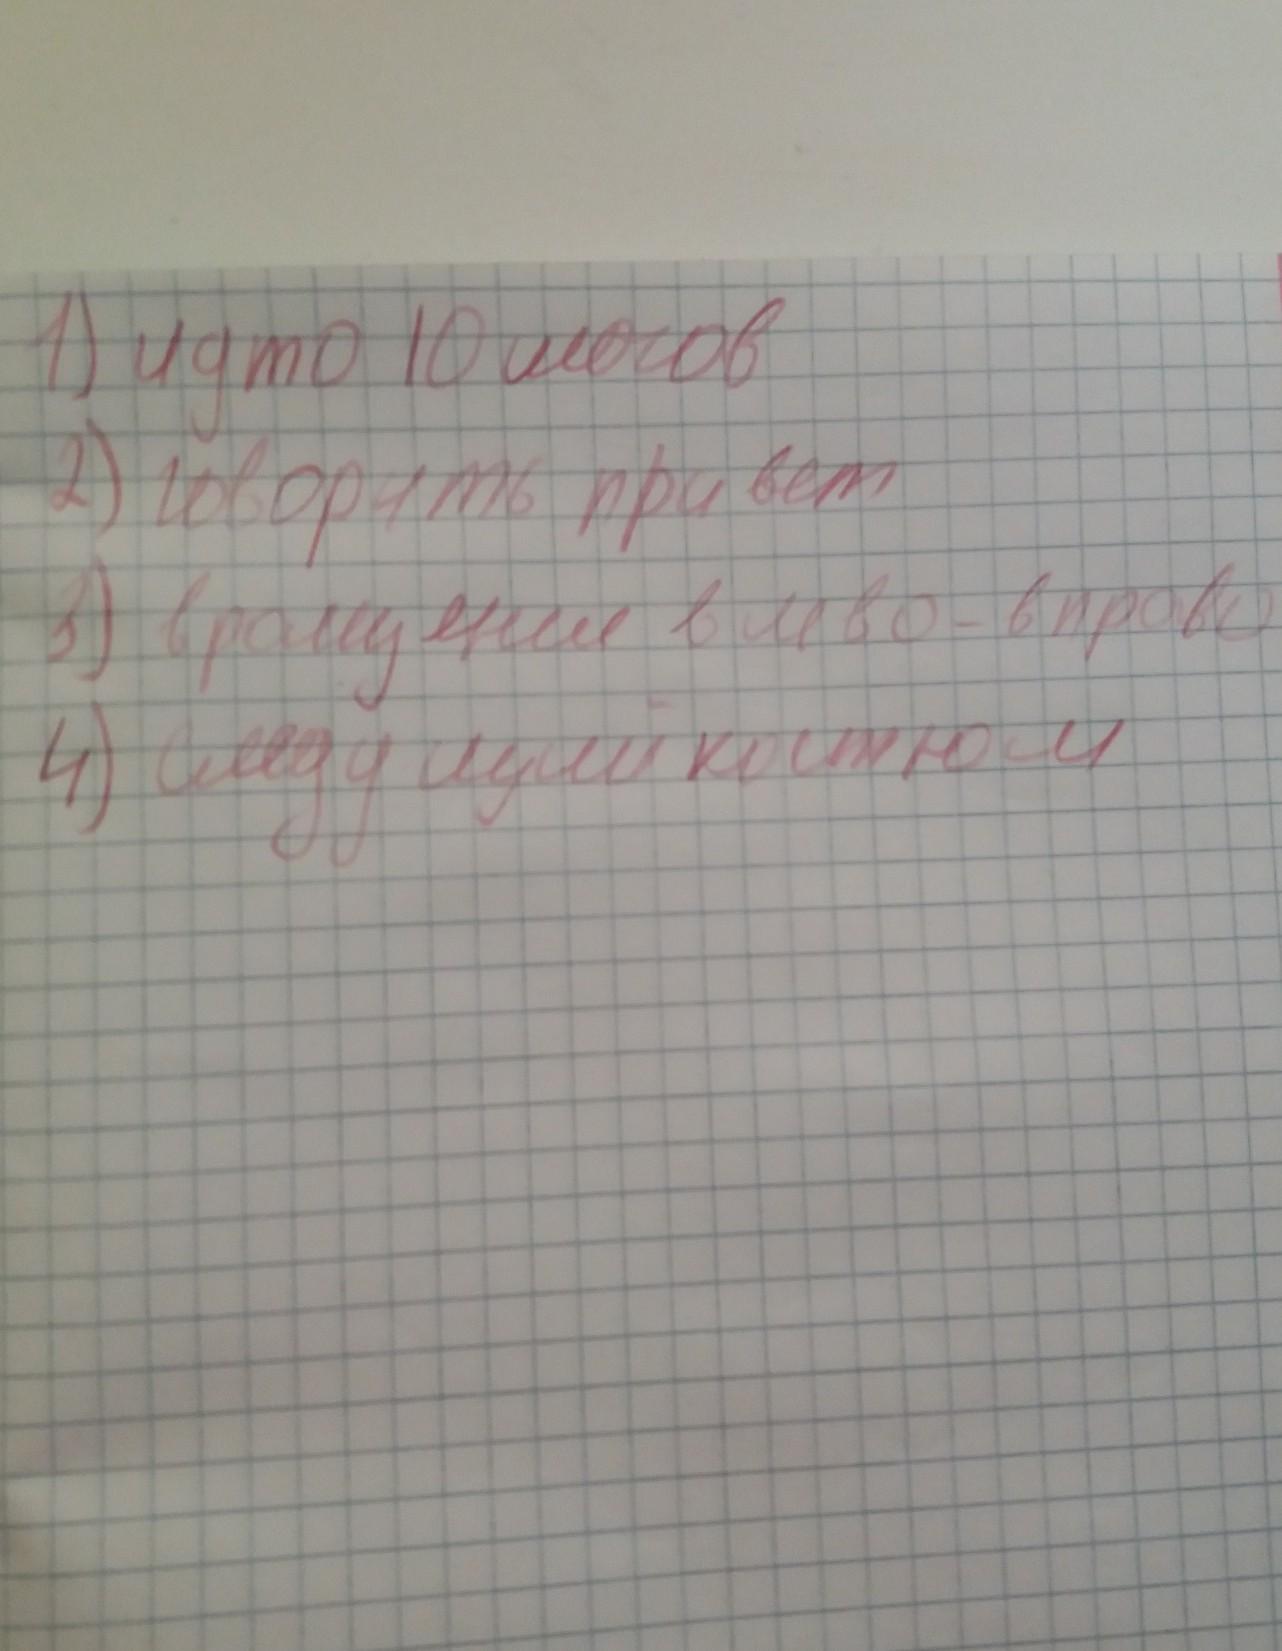 1) идто 10 шогов
2) говорить привет
3) вращение влево-вправо
4) следующий костюм